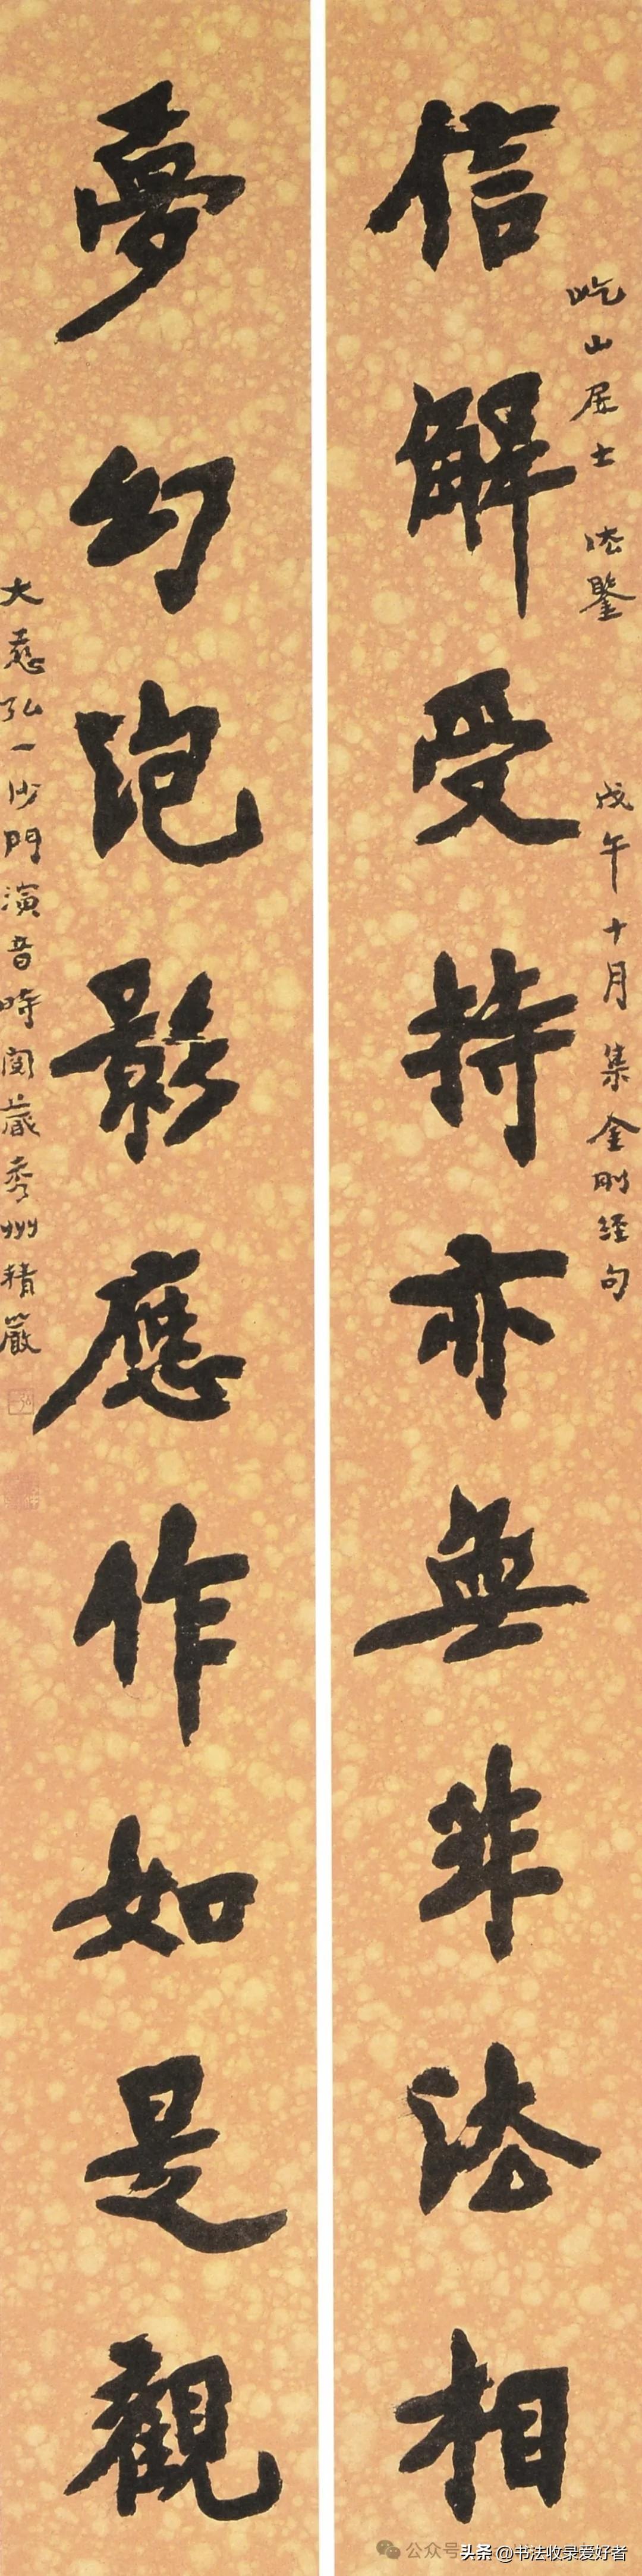 信解受持亦無非法相
屹山居士 法鑒
戊午十月集金剛經句
夢幻泡影應作如是觀
大慈弘一沙門演音時閱藏秀州精嚴
公众号
头条 @书法收录爱好者